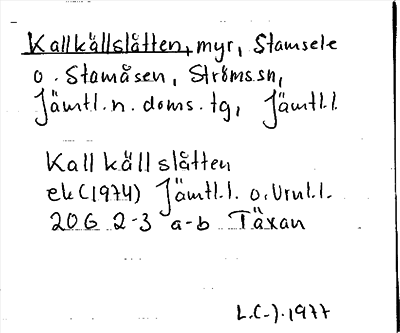 Kallkällslåtten, myr, Stamsele
o. Stamåsen, Ströms.sn,
Jämtl. n. doms. tg, Jämtl.l.
Kallkällslåtten
ek (1974) Jämtl.l. o. Vrnl.l.
20G 2-3 a-b Täxan
L.C-). 1977